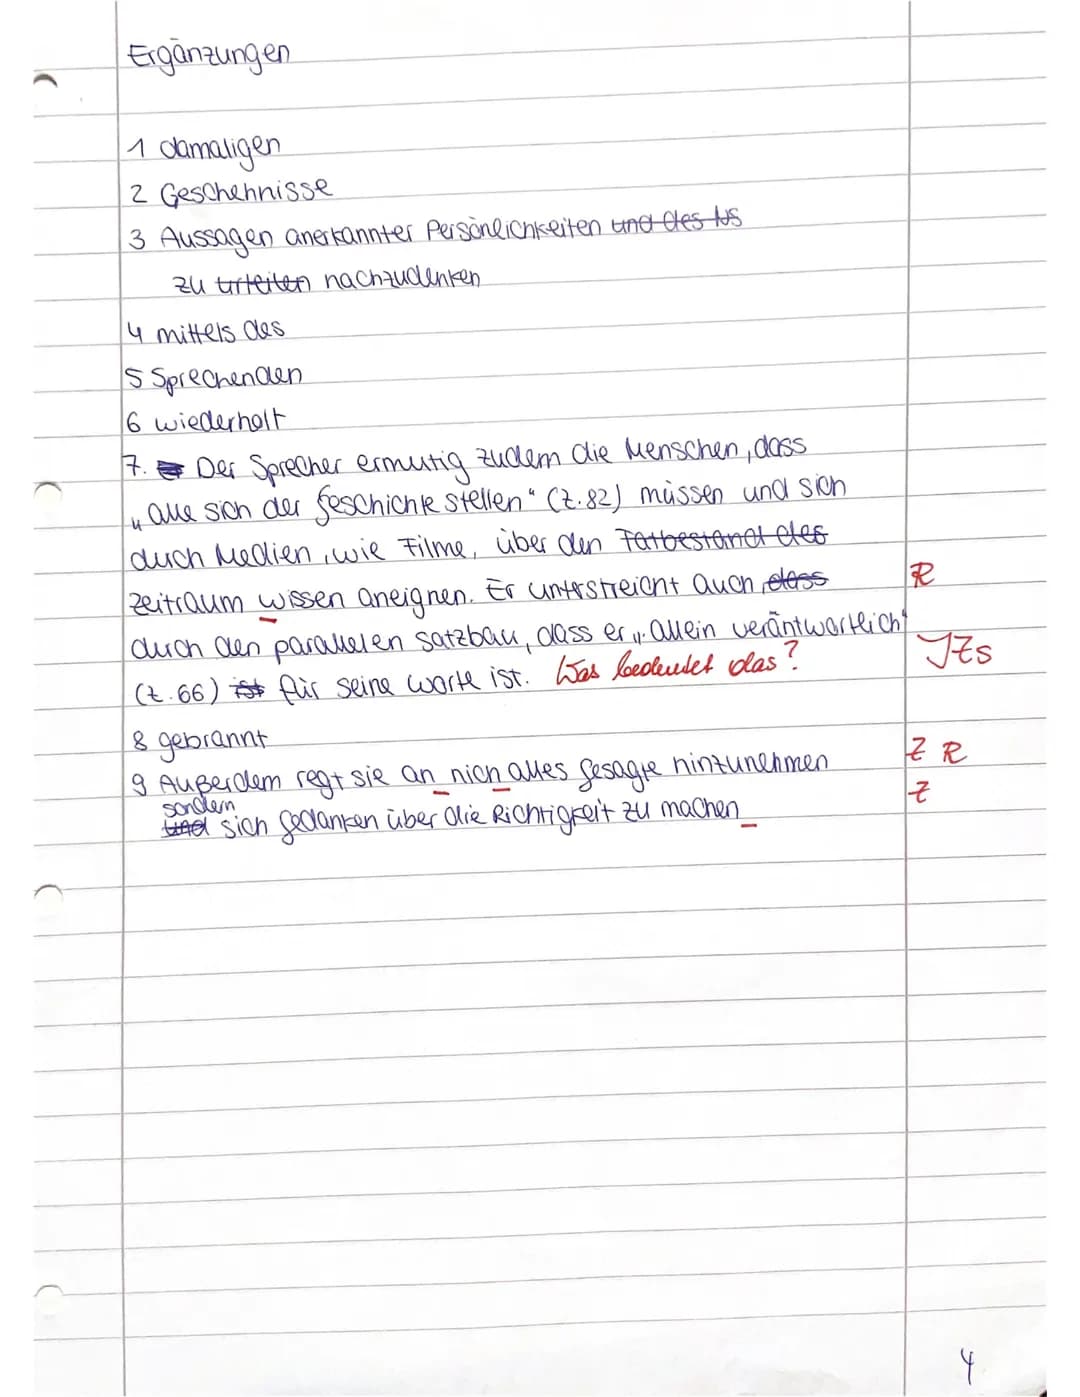 Ergänzungen
1 damaligen
2 Geschehnisse
3 Aussagen anerkannter Persönlichkeiten und des Us
zu urteilen nachzudenken
4 mittels des
5 Sprechenden
6 wiederholt
7. Der Sprecher ermutig zudem die Menschen, dass
„alle sich der Geschichte stellen" (Z.82) müssen und sich
duch Medien, wie Filme, über den Tatbestand des
Zeitraum wissen aneignen. Er unterstreicht auch, dass R
duch den parallelen Satzbau, dass er „allein verantwortlich" JZs
(Z.66) ist für seine Worte ist. Was bedeutet das?
8 gebrannt
9 Außerdem regt sie an nich alles Gesagte hinzunehmen Z R
sondern Z
und sich Gedanken über die Richtigkeit zu machen
4